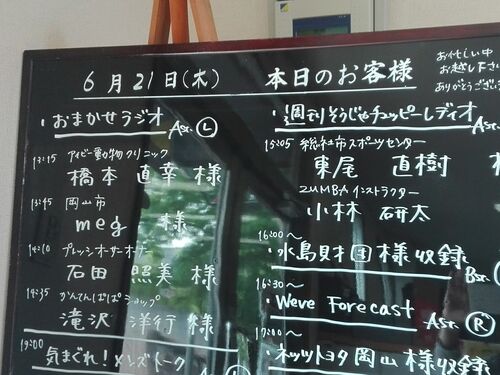 6月21日(木)
本日のお客様
お忙しい中
お越し下さい
ありがとうござい
・おまかせラジオ
Ast. Ⓛ
13:15 アイビー動物クリニック
橋本 直幸 様
13:45 岡山市
meg 様
14:10 プレッシオーサーオーナー
石田 照美 様
14:35 かんてんぱぱショップ
滝沢 洋行 様
19:00
・気まぐれ!メンズトーク
・週刊そうじゃチュッピーレディオ
Ast.
15:05 総社市スポーツセンター
東尾 直樹
ZUMBAインストラクター
小林 研太
16:00〜
・水島財団様収録
Bst.
16:30〜
・Weve Forecast
Ast. Ⓡ
17:00〜
・ネッツトヨタ岡山様収録